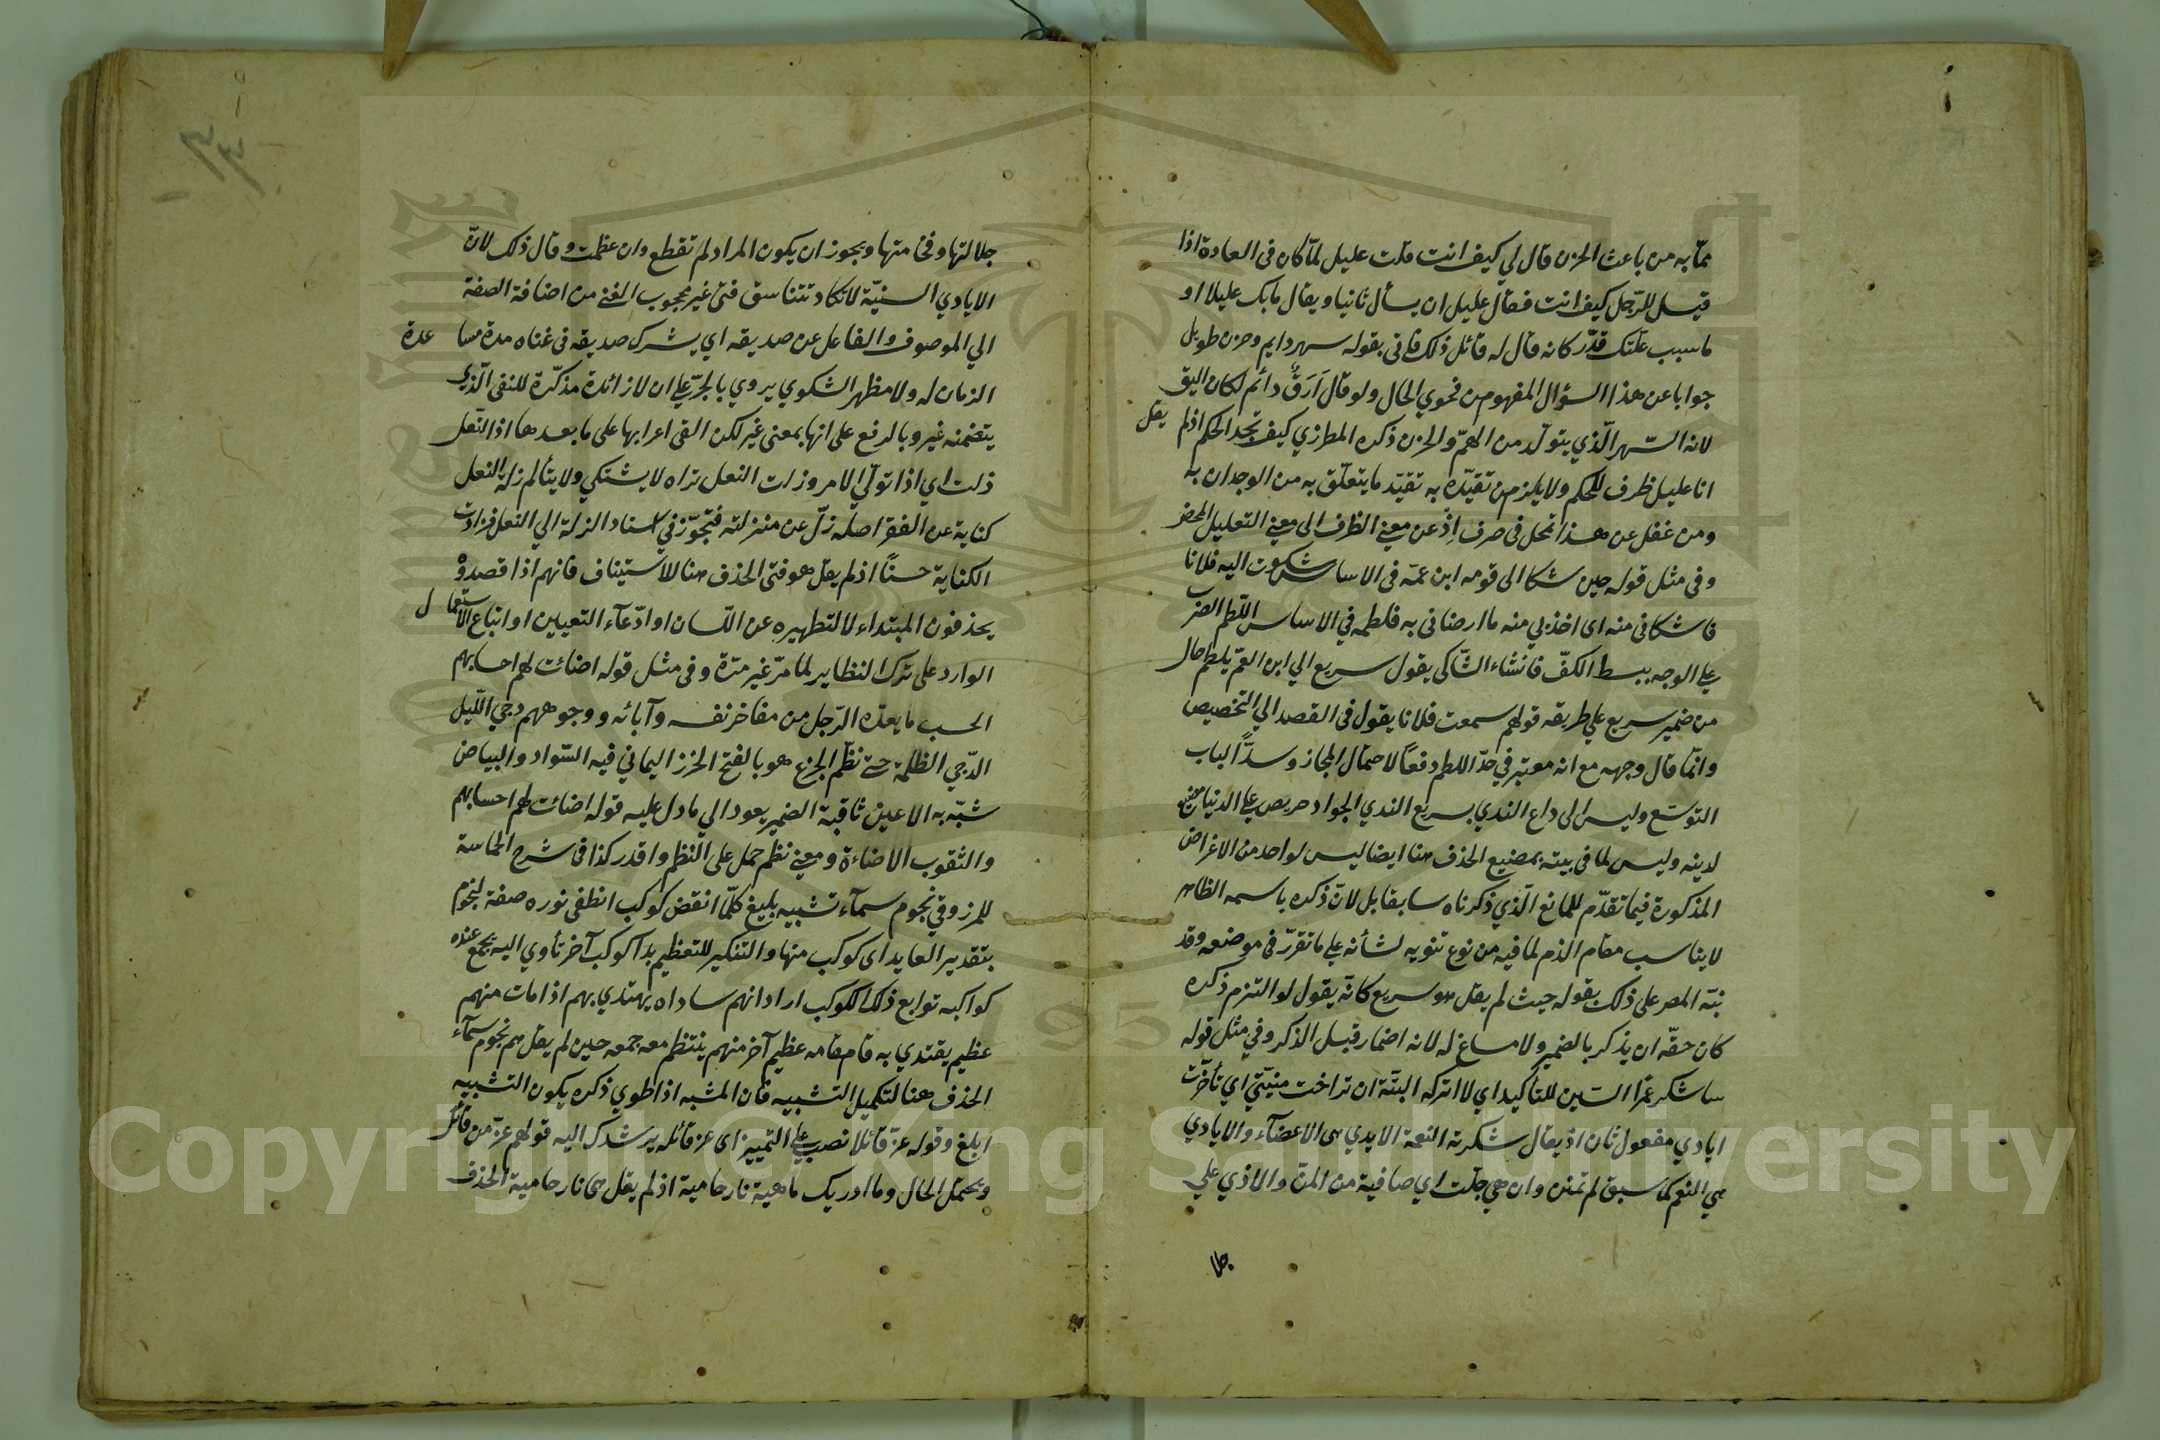 ممّا به من باعث الحزن قال لي كيف انت قلت عليل لمّا كان فى العادة اذا
قيل للرّجل كيف انت فقال عليل ان يسأل ثانيا ويقال ما بك عليلا او
ما سبب علّتك قدّر كانه قال له قائل ذلك فاتى بقوله سهر دايم وحزن طويل
جوابا عن هذا السؤال المفهوم من فحوي الحال ولو قال أَرَقٌ دائم لكان اليق
لانه السّهر الّذي يتولّد من الهمّ والحزن ذكره المطرزي كيف تجد الحكم اذ لم يقل
انا عليل ظرف للحكم ولا يلزم من تقيّده به تقيّد ما يتعلّق به من الوجدان به
ومن غفل عن هذا تمحل فى صرف اِذْ عن معني الظرف الى معني التعليل المحض
وفى مثل قوله حين شكا الى قومه ابن عمّه فى الاساس شكوت اليه فلانا
فاشكانى منه اى اخذ لي منه ما ارضانى به فلطمه في الاساس اللّطم الضرب
علي الوجه ببسط الكفّ فانشاء الشّاكى يقول سريع الي ابن العمّ يلطم حال
من ضمير سريع علي طريقه قولهم سمعت فلانا يقول فى القصد الي التخصيص
وانّما قال وجهه مع انه معتبر في حدّ اللطم دفعًا لاحتمال المجاز وسدًّا لباب
التوسّع وليس الى داع الندي بسريع الندي الجواد حريص علي الدنيا مضيع
لدينه وليس لما فى بيته بمضيع الحذف هنا ايضا ليس لواحد من الاغراض
المذكورة فيما تقدّم للمانع الّذي ذكرناه سابقا بل لانّ ذكره باسمه الظاهر
لا يناسب مقام الذم لما فيه من نوع تنويه لشأنه علي ما تقرّر فى موضعه وقد
نبّه المص على ذلك بقوله حيث لم يقل هو سريع كانّه يقول لو التزم ذكره
كان حقّه ان يذكر بالضمير ولا مساغ له لانه اضمار قبل الذكر وفي مثل قوله
ساشكر عمْرا السّين للتأكيد اي لا اتركه البتّة ان تراخت منيّتي اي تأخّرت
ايادي مفعول ثان اذ يقال شكرته النعمة الايدي هى الاعضآء والايادي
هي النعم كما سبق لم تمنن وان هي جلّت اي صافية من المنّ والاذي علي
جلا
جلالتها وفخامتها ويجوز ان يكون المراد لم تقطع وان عظمت وقال ذلك لانّ
الايادي السنيّة لا تكاد تتناسق فتى غير محجوب الغنى من اضافة الصفة
الي الموصوف والفاعل عن صديقه اي يشرك صديقه فى غناه مدة مساعدة
الزمان له ولا مظهر الشكوي يروي بالجرّ علي ان لا زائدة مذكّرة للنفى الّذي
يتضمنه غير وبالرفع على انها بمعنى غير لكن القى اعرابها على ما بعدها اذا النعل
زلت اي اذا تولّي الامر وزلت النعل تراه لا يشتكي ولا يتألم زلة النعل
كناية عن الفقر اصله زلّ عن منزلته فتجوّز في اسناد الزلة الي النعل فزادت
الكناية حسنًا اذ لم يقل هو فتى الحذف هنا للاستيناف فانهم اذا قصدوه
يحذفون المبتداء لا لتطهيره عن اللّسان او ادّعآء التعيين او اتباع الاستعمال
الوارد على ترك النظاير لما مرّ غير مرّة وفى مثل قوله اضائت لهم احسابهم
الحسب ما يعدّه الرّجل من مفاخر نفسه وآبائه ووجوههم دجي اللّيل
الدّجي الظلمة حتى نظّم الجزع هو بالفتح الخرز اليماني فيه السّواد والبياض
شبّه به الاعين ثاقبة الضمير يعود الي ما دل عليه قوله اضائت لهم احسابهم
والثقوب الاضاءة ومعني نظّم حمل على النظم واقدر كذا فى شرح الحماسة
للمرزوقي نجوم سمآء تشبيه بليغ كلّما انقضّ كوكب انطفى نوره صفة لنجوم
بتقدير العايد اى كوكب منها والتنكير للتعظيم بدا كوكب آخر تأوي اليه يجمع عنده
كواكبه توابع ذلك الكوكب اراد انهم ساداه يهتدي بهم اذا مات منهم
عظيم يقتدي به قام مقامه عظيم آخر منهم ينتظم معه جمعه حين لم يقل هم نجوم سمآء
الحذف هنا لتكميل التشبيه فان المشبه اذا طوي ذكره يكون التشبيه
ابلغ وقوله عزّ قائلا نصب علي التمييز اى عز قائله يرشدك اليه قولهم عزّ من قائل
ويحتمل الحال وما ادريك ما هية نار حامية اذ لم يقل هى نار حامية الحذف
Copyright © King Saud University